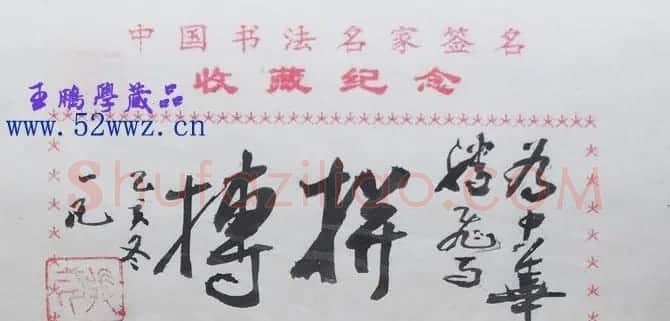 中国书法名家签名
收藏纪念
王鵬學藏品
www.52wwz.cn
shufaziliao.com
为中華
腾飛而
拼
搏
乙亥冬
一凡